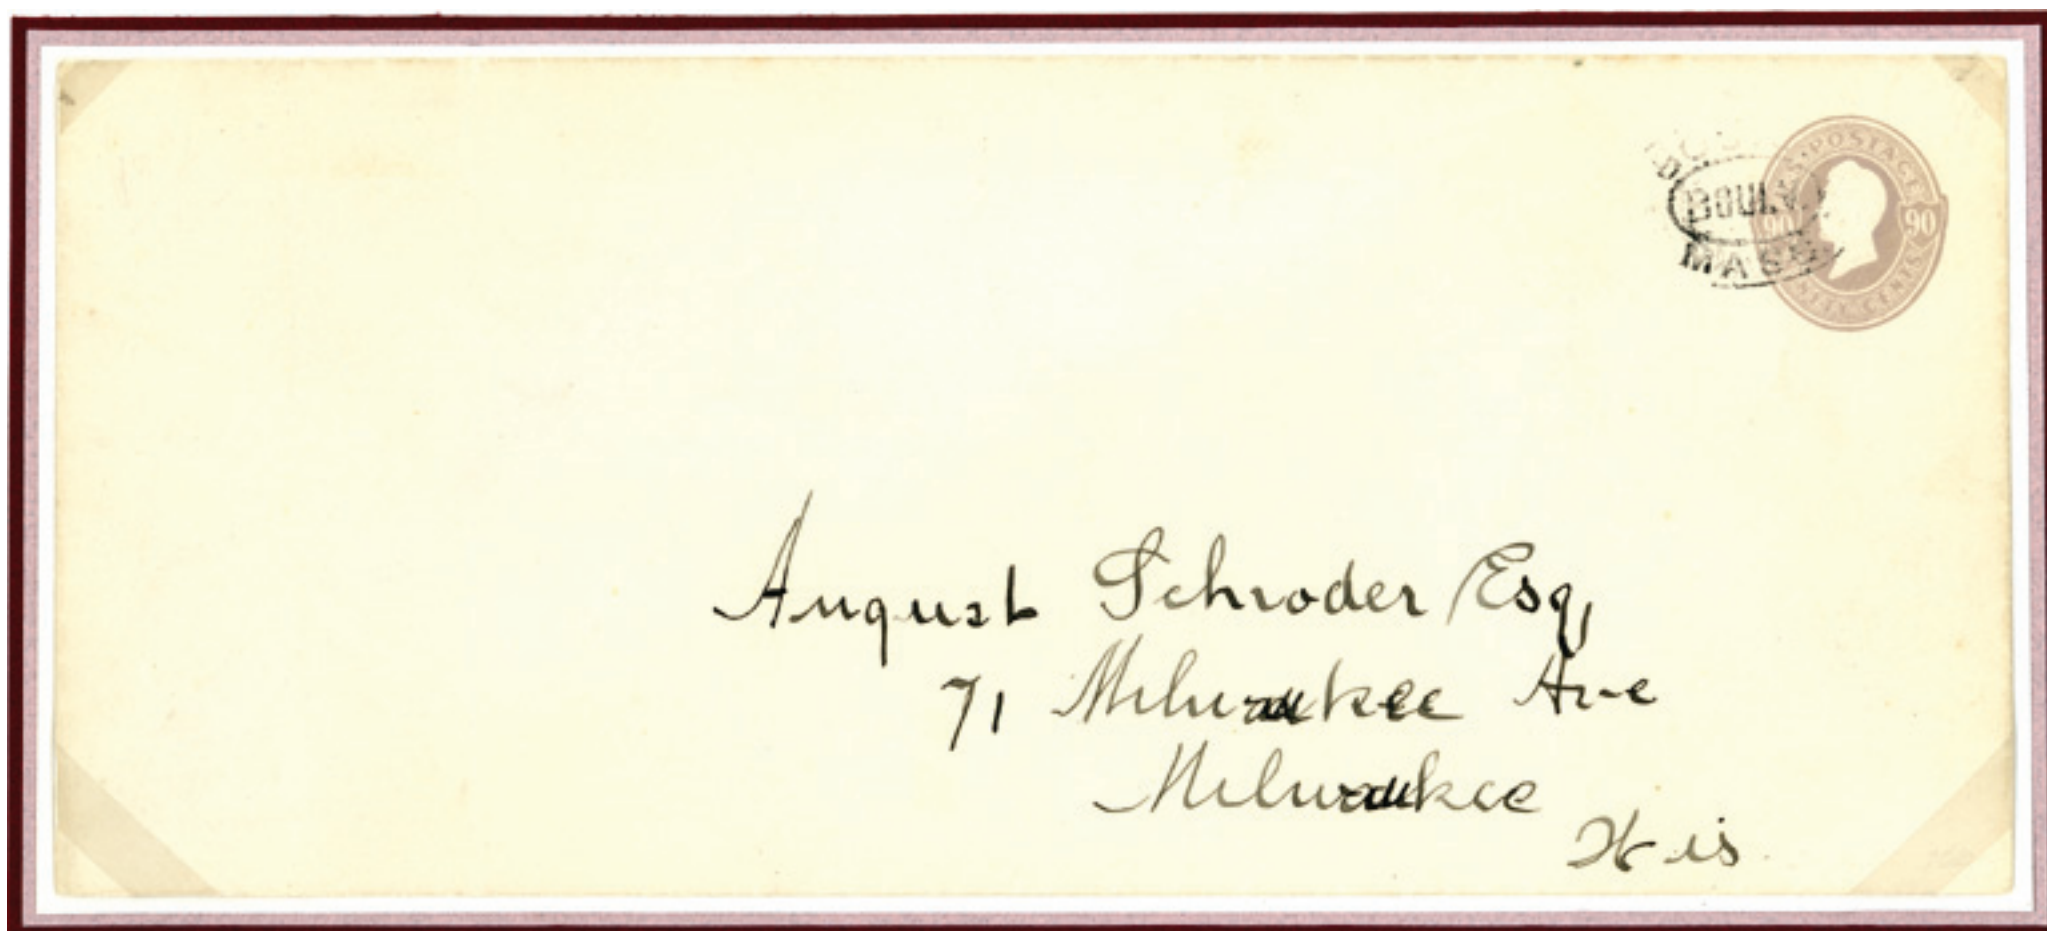 U.S. POSTAGE
90 90
NINETY CENTS
BOULV.
MASS
August Schroder Esq,
71 Milwaukee Ave
Milwaukee
Wis